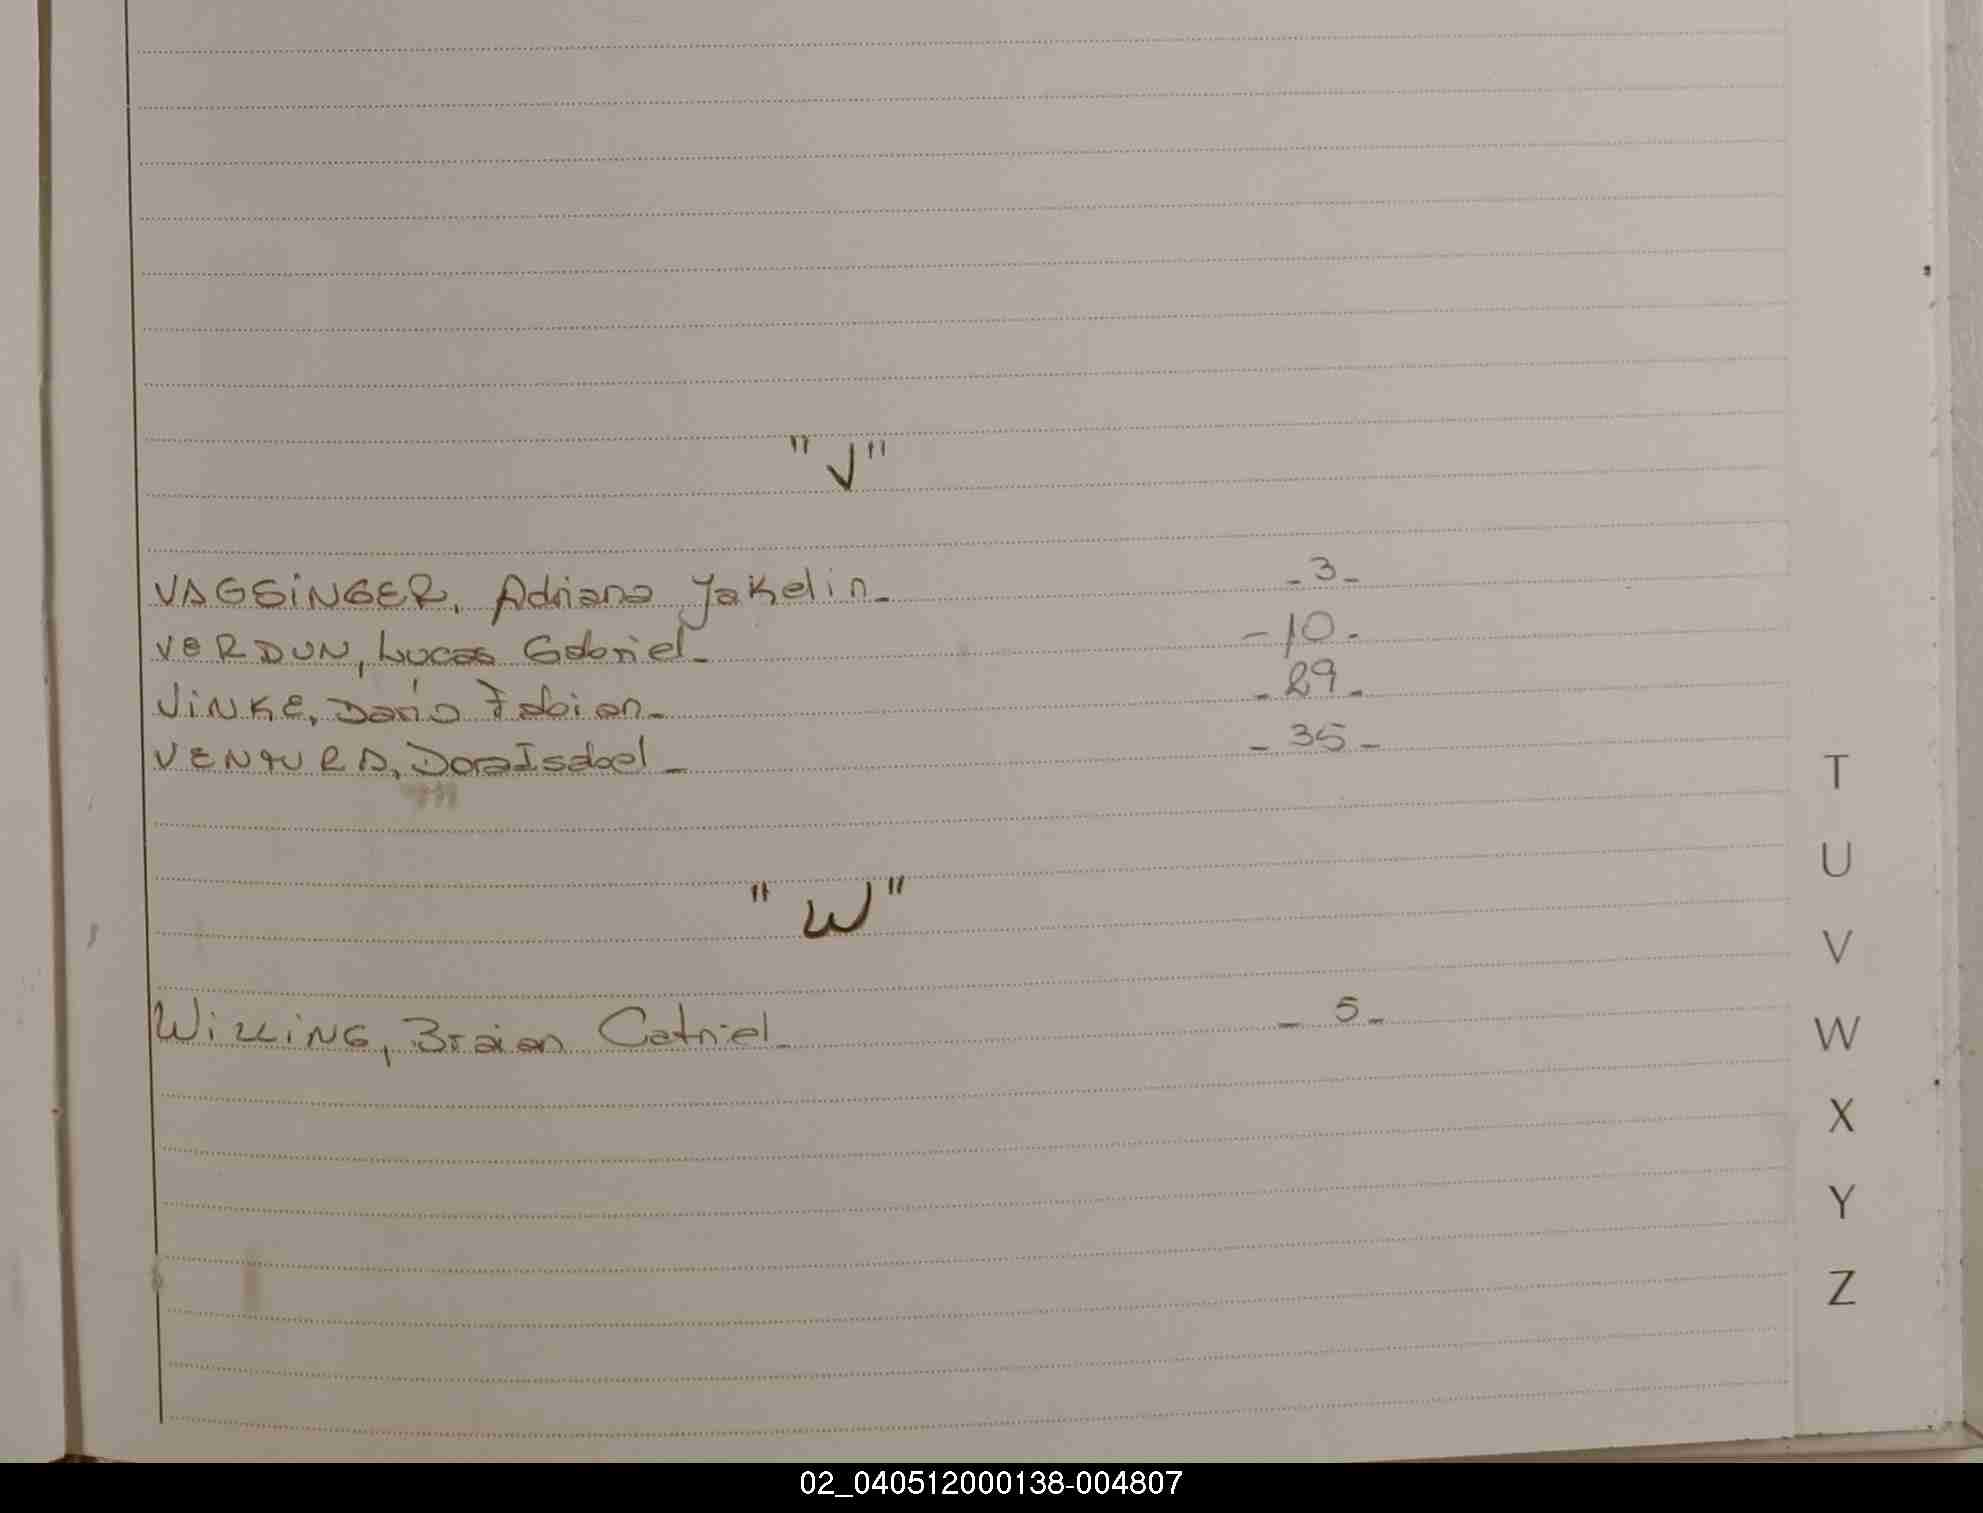 "V"
VAGSINGER, Adriana Yakelin_ _3_
VERDUN, Lucas Gabriel_ _10_
VINKE, Darío Fabian_ _29_
VENTURA, Dora Isabel_ _35_
"W"
WILLING, Braian Catriel_ _5_
T
U
V
W
X
Y
Z
02_040512000138-004807